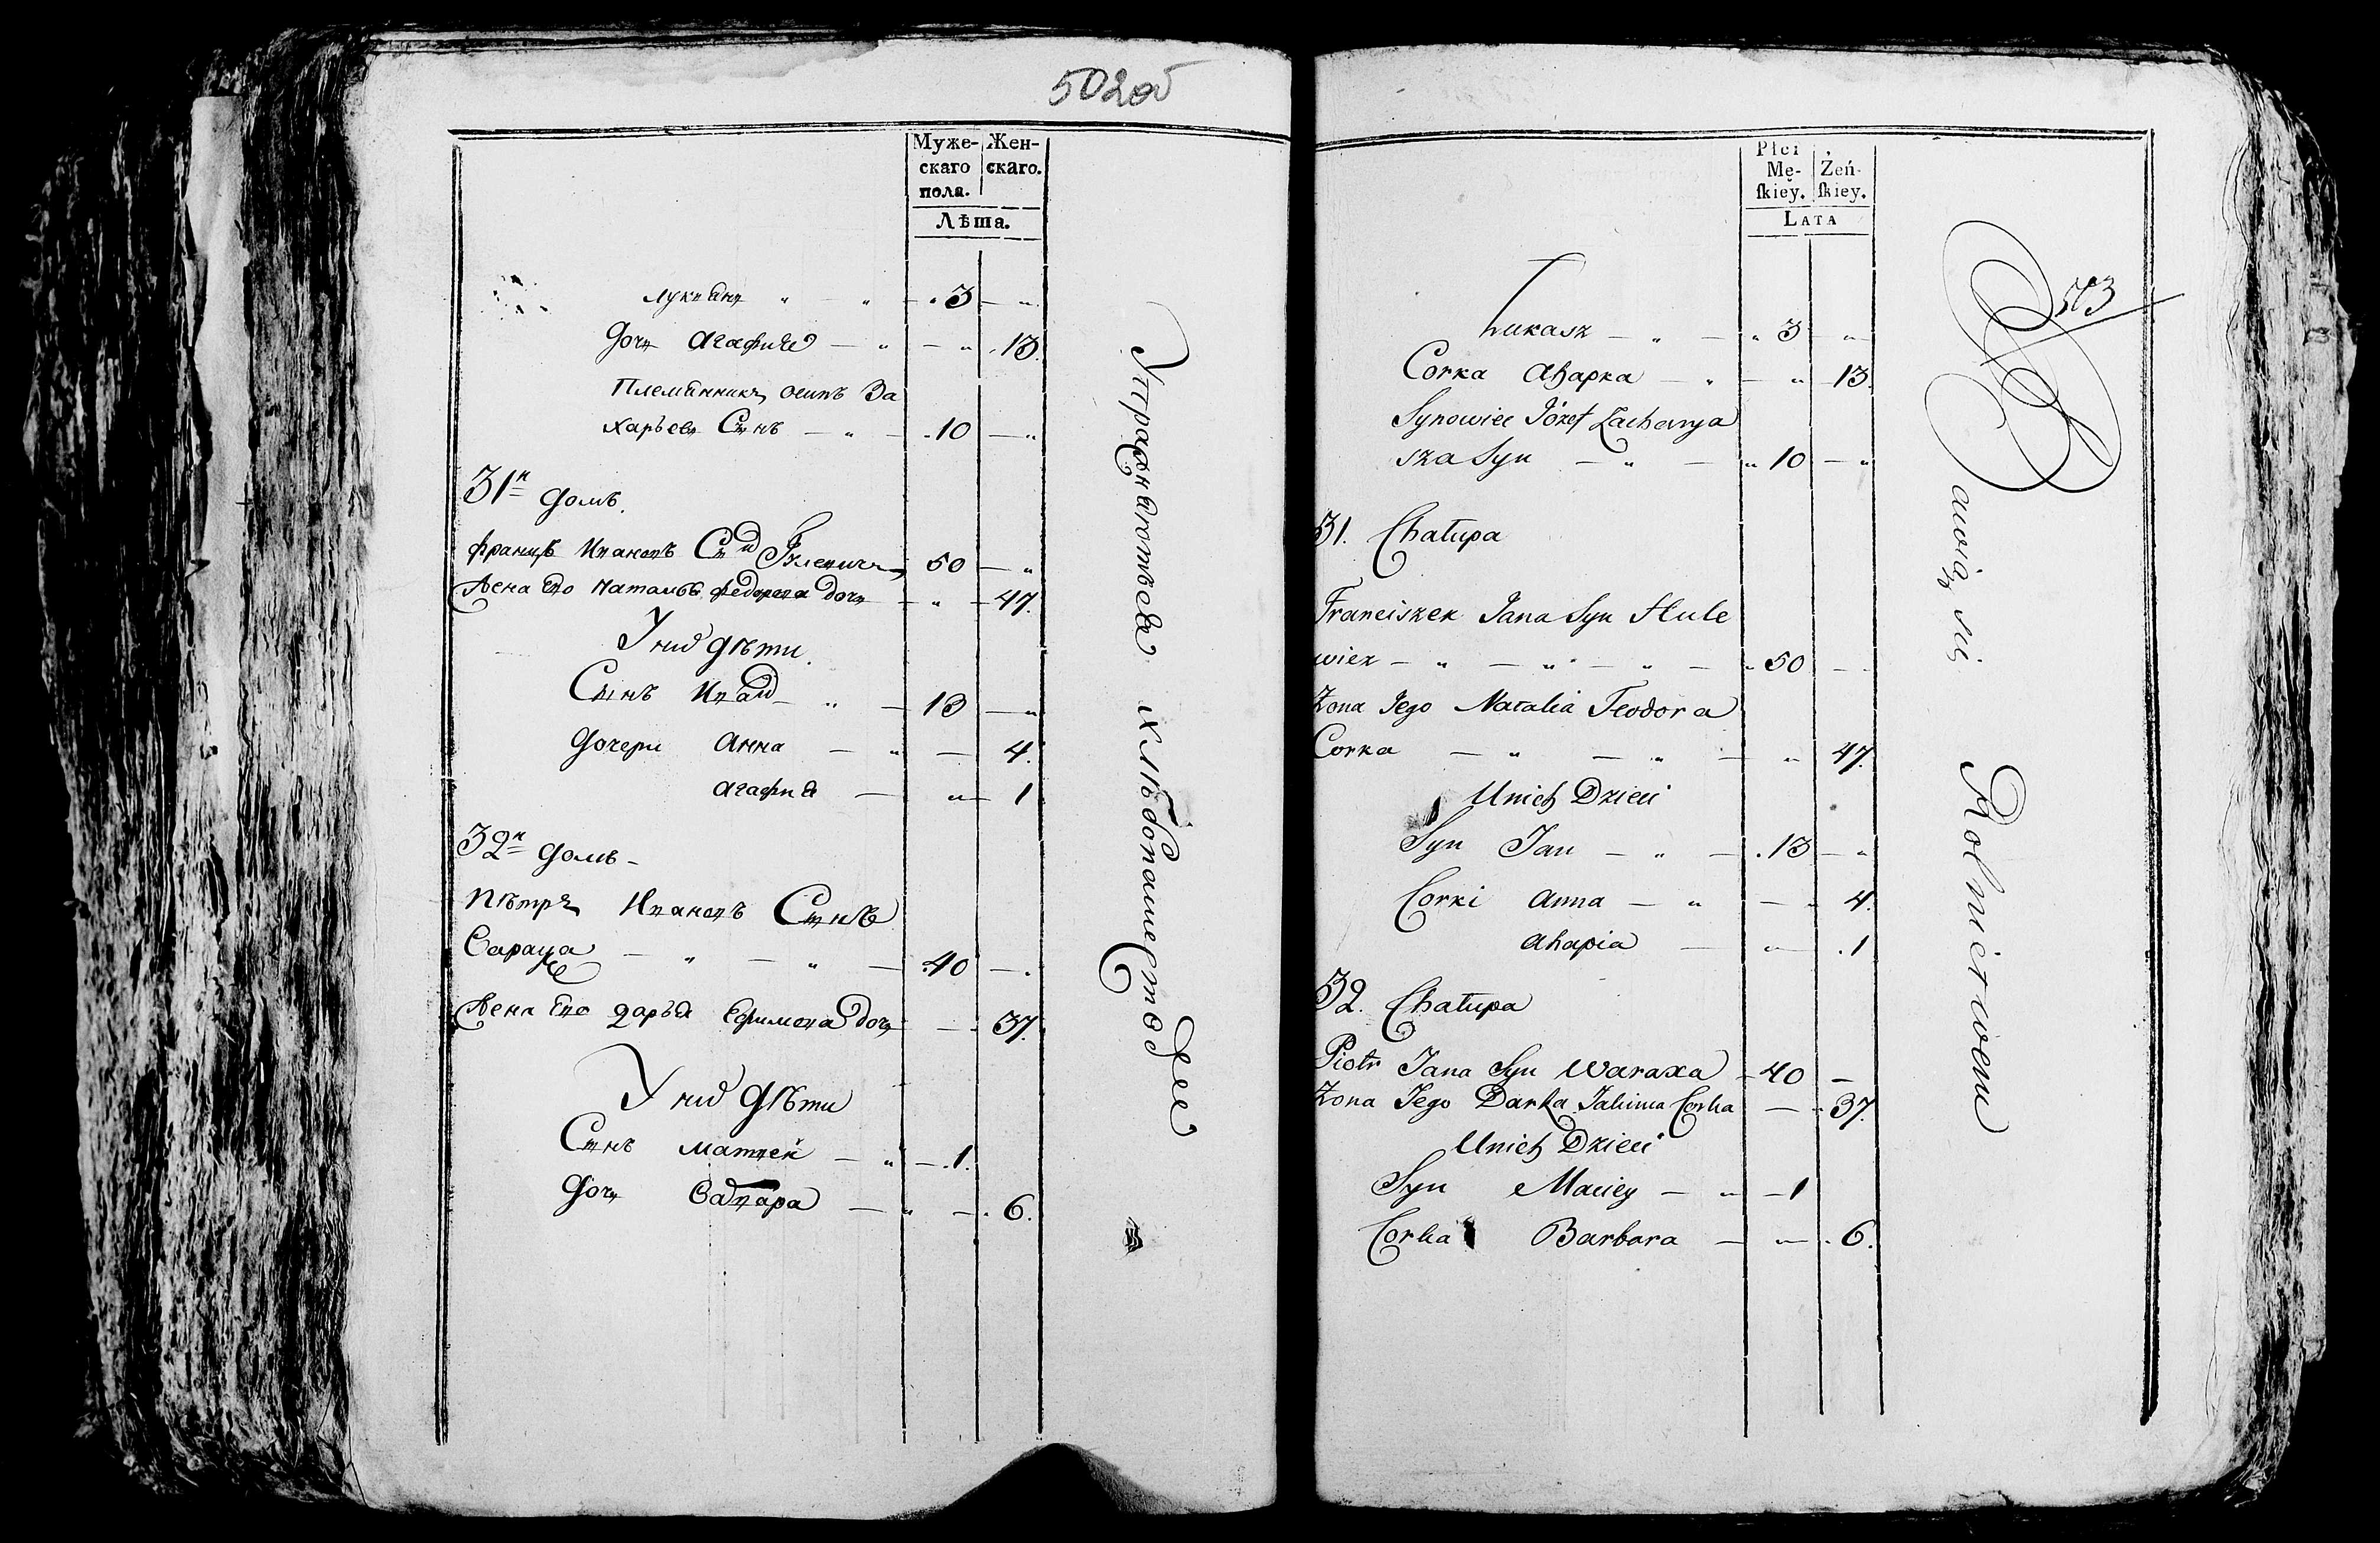 502об
Муже-
скаго
пола.
Жен-
скаго.
Лѣта.
Лукьянъ " — " — " 3 — "
Дочь Агафия — " — " 13.
Племянникъ Осипъ За
харьевъ Сынъ — " — 10 — "
31й домъ.
Францъ Ивановъ Сынъ 50 — "
Жена Его Наталья Федорова дочь — " — 47.
У них дѣти.
Сынъ Иван — " — 13 — "
Дочери Анна — " — 4.
Агафия — " — 1
32й домъ —
Пѣтръ Ивановъ Сынъ
— " — " — 40 — .
Жена Его Дарья Ефимова дочь — 37.
У них дѣти
Сынъ Матвей — " — . 1.
Дочь Варвара — " — . 6.
Упражняются хлѣбопашеством
503
Płci
Mę-
ſkiey.
Żeń-
ſkiey.
LATA
Łukasz — " — " 3 — "
Corka Ahapka — " — " 13.
Synowiec Józef Zacharya
sza Syn — " — " 10 — "
31. Chałupa
Franciszek Jana Syn Hule
wicz — " — " — " — " 50 — "
Zona Jego Natalia Teodora
Corka — " — " — " 47.
Unich Dzieci
Syn Jan — " — . 13 — "
Corki Anna — " — " 4.
Ahapia — " — . 1
32. Chałupa
Piotr Jana Syn Waraxa — 40 —
Zona Jego Darka Jakima Corka — " 37.
Unich Dzieci
Syn Maciey — " — 1
Corka Barbara — " — . 6.
Bawią się Rolnictwem